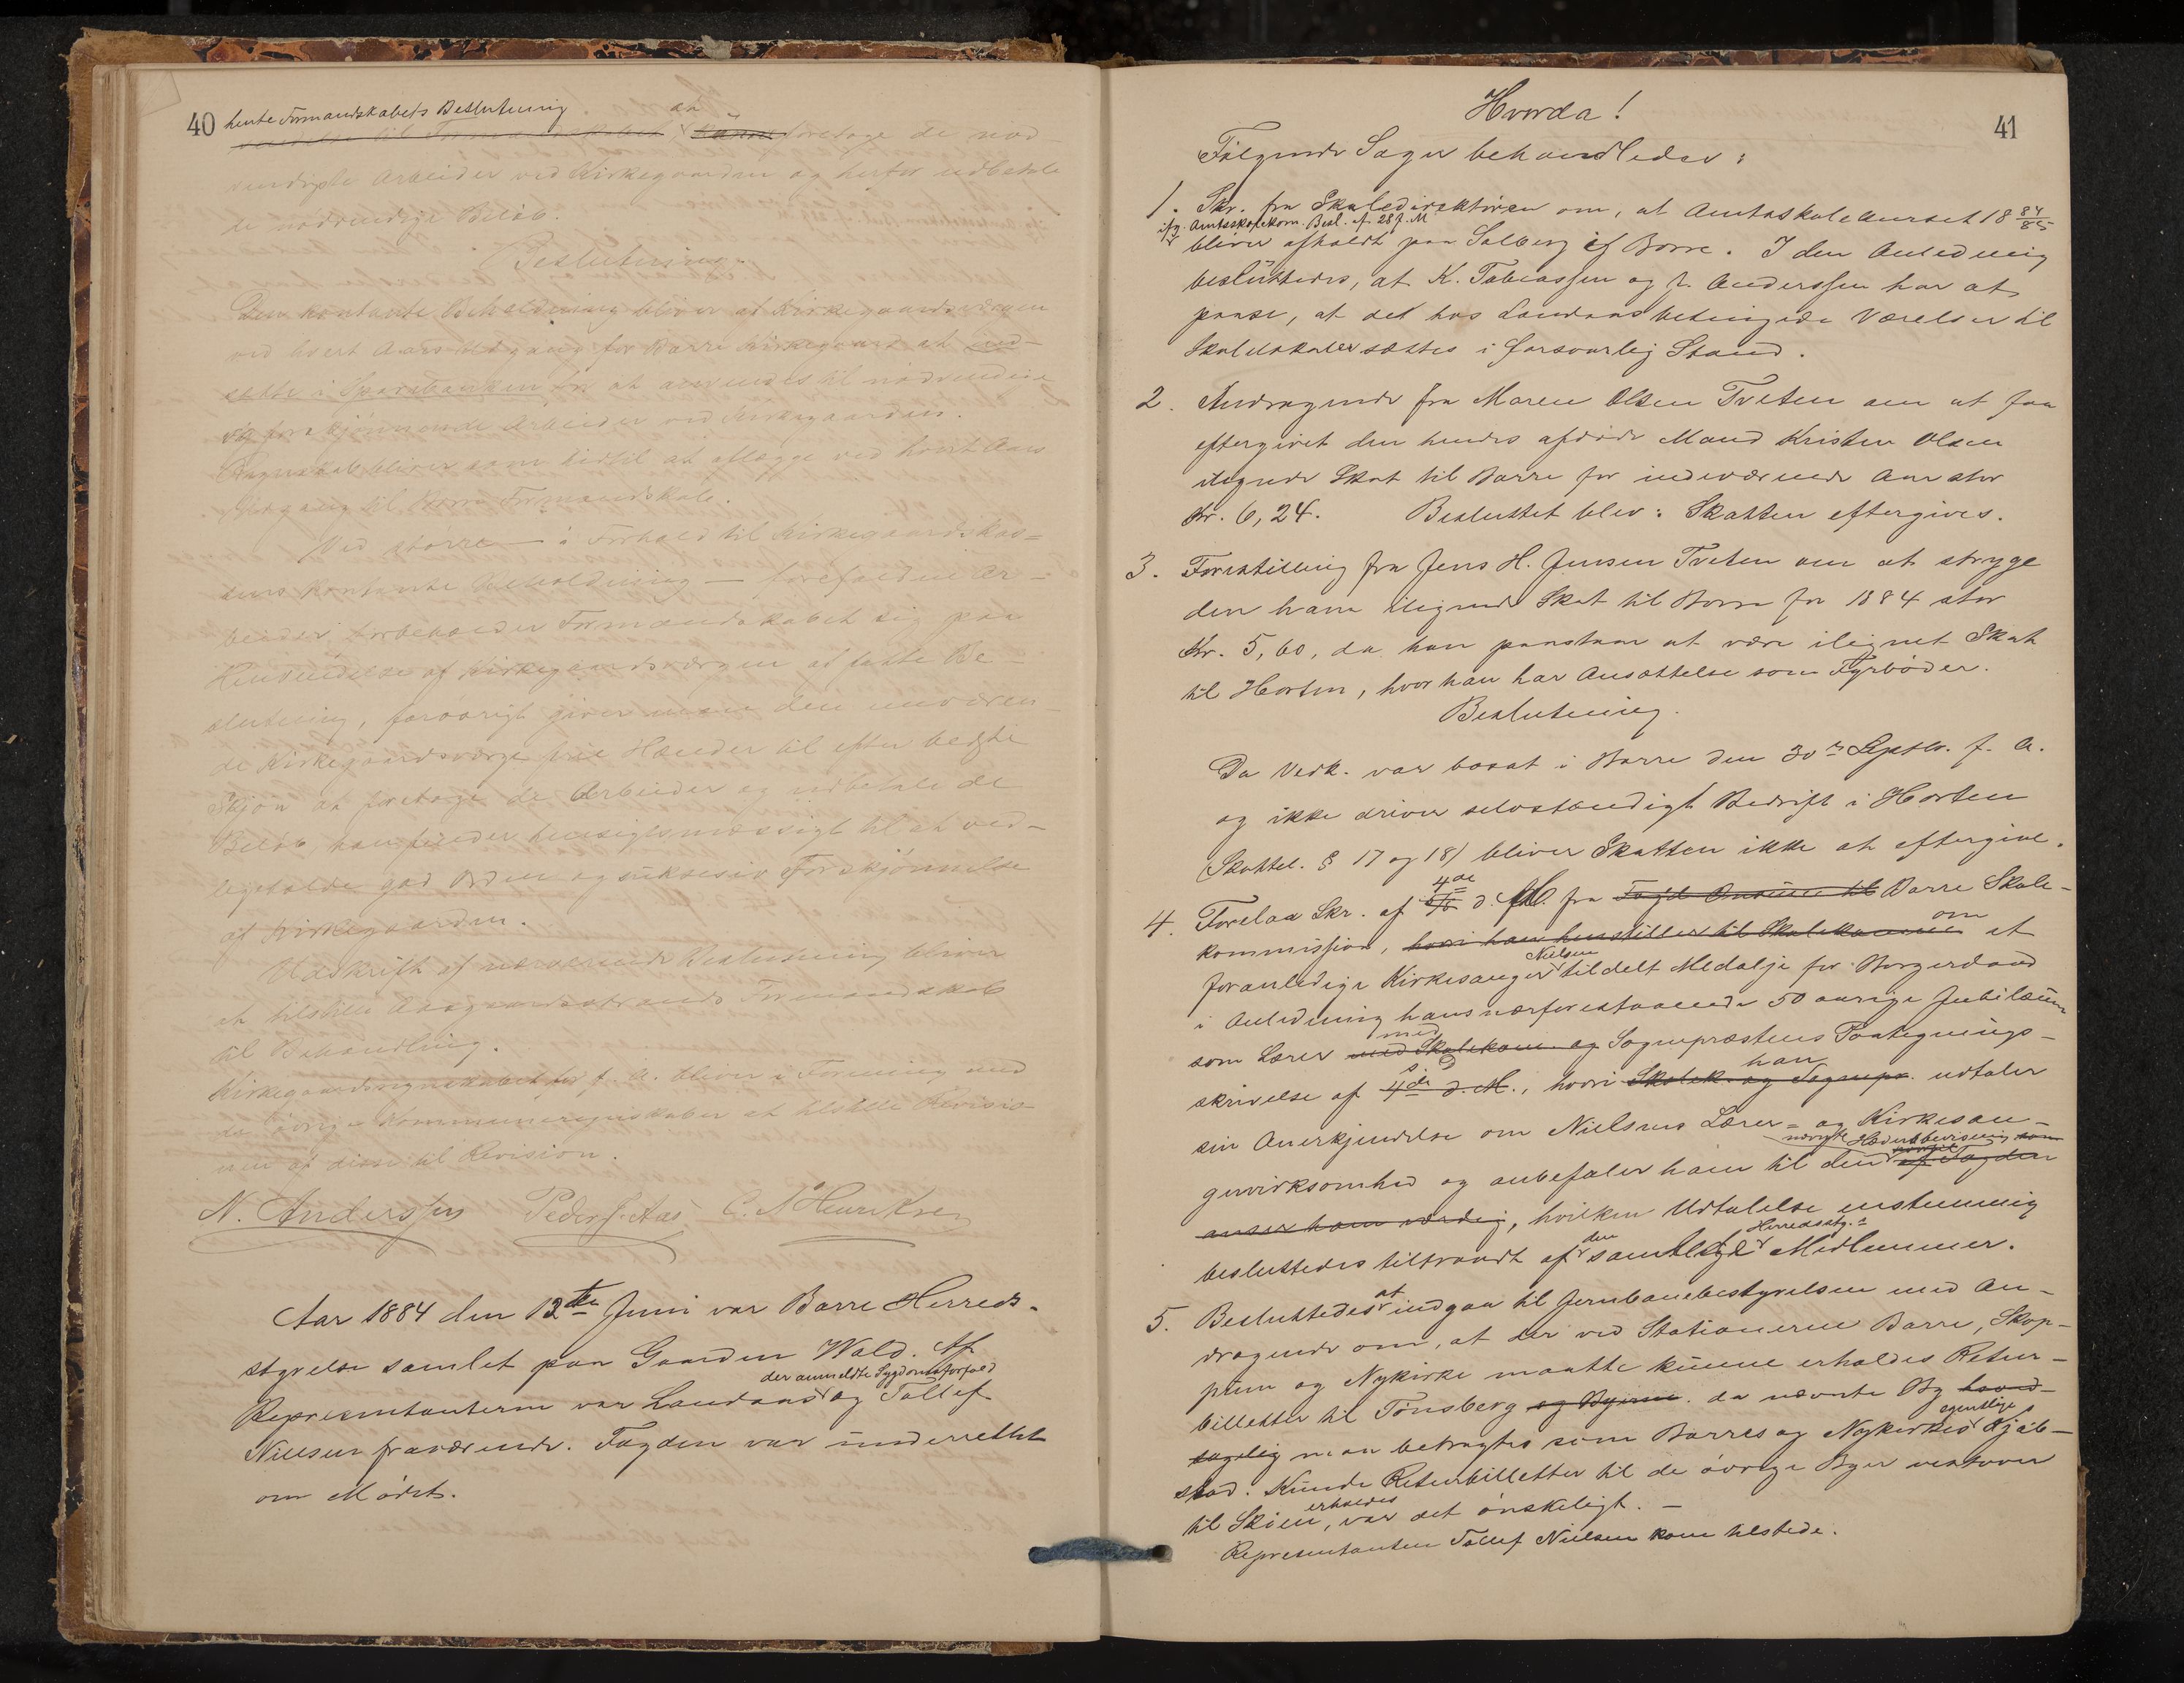 40 hente Formandskabets Beslutning
at foretage de nød-
vendigste Arbeider ved Kirkegaarden og herfor udbetale
de nødvendige Beløb.
Beslutning.
Den kontante Beholdning bliver af Kirkegaardsværgen
ved hvert Aars Udgang for Borre Kirkegaard at ind-
sætte i Sparebanken for at anvendes til nødvendige
og forskjønnende Arbeider ved Kirkegaarden.
Regnskab bliver som hidtil at aflægge ved hvert Aars
Udgang til Borre Formandskab.
Ved større – i Forhold til Kirkegaardskas=
sens kontante Beholdning – forefaldne Ar-
beider, forbeholder Formandskabet sig paa
Henvendelse af Kirkegaardsværgen at fatte Be-
slutning, forøvrigt giver man den nuværen-
de Kirkegaardsværge frie Hænder til efter bedste
Skjøn at foretage de Arbeider og udbetale de
Beløb, han finder hensigtsmæssigt til at ved-
ligeholde god Orden og suksesiv Forskjønnelse
af Kirkegaarden.
Udskrift af nærværende Beslutning bliver
at tilstille Aasgaardsstrands Formandskab
til Behandling.
Kirkegaardsregnskabet for f. A. bliver i Forening med
de øvrige Kommuneregnskaber at tilstille Revisio-
nen af disse til Revision.
N. Anderssen Peder J. Aas C. N Henriksen
Aar 1884 den 12te Juni var Borre Herreds-
styrelse samlet paa Gaarden Wold. Af
der anmeldte Sygdomsforfald
Repræsentanterne var Laudaas og Tollef
Nielsen fraværende. Fogden var underrettet
om Mødet.
Hvorda!
41
Følgende Sager behandledes:
1. Skr. fra Skoledirektøren om, at Amtsskolekurset 18 84/85
ifg. Amtsskolekom. Besl. af 28 f. M
bliver afholdt paa Solberg i Borre. I den Anledning
besluttedes, at K. Tobiassen og N. Anderssen har at
paase, at det hos Laudaas betingede Værelser til
Skolelokaler sættes i forsvarlig Stand.
2. Andragende fra Maren Olsen Tveten om at faa
eftergivet den hendes afdøde Mand Kristen Olsen
ilignede Skat til Borre for indeværende Aar stor
Kr. 6,24. Besluttet blev: Skatten eftergives.
3. Forestilling fra Jens H. Jensen Tveten om at stryge
den ham ilignede Skat til Borre for 1884 stor
Kr. 5,60, da han paastaar at være ilignet Skat
til Horten, hvor han har Ansættelse som Fyrbøder.
Beslutning.
Da Vedk. var bosat i Borre den 30te Septbr. f. A.
og ikke driver selvstændigt Bedrift i Horten
(Skattel. § 17 og 18) bliver Skatten ikke at eftergive.
4de
4. Forelaa Skr. af d. M. fra Borre Skole-
om
kommission, hvori han henstiller til Skolekommis. at
Nielsen
foranledige Kirkesanger tildelt Medalje for Borgerdaad
i Anledning hans nærforestaaende 50 aarige Jubilæum
med
som Lærer med Skolekom. og Sognepræstens Paategnings-
han
skrivelse af 4de d. M., hvori Skolek. og Sognepr. udtaler
sin Anerkjendelse om Nielsens Lærer= og Kirkesan-
nævnte Hædersbevisning som
gervirksomhed og anbefaler ham til den af Fogden
anser ham værdig, hvilken Udtalelse enstemmig
den Herredsstg.=
besluttedes tiltraadt af samtlige Medlemmer.
at
5. Besluttedes indgaa til Jernbanebestyrelsen med An-
dragende om, at der ved Stationerne Borre, Skop-
pum og Nykirke maatte kunne erholdes Retur-
billetter til Tønsberg og Byerne. da nævnte By hoved-
egentlige
sagelig maa betragtes som Borres og Nykirkes Kjøb-
stad. Kunde Returbilletter til de øvrige Byer vestover
erholdes
til Skien, var det ønskeligt. –
Representanten Tollef Nielsen kom tilstede.